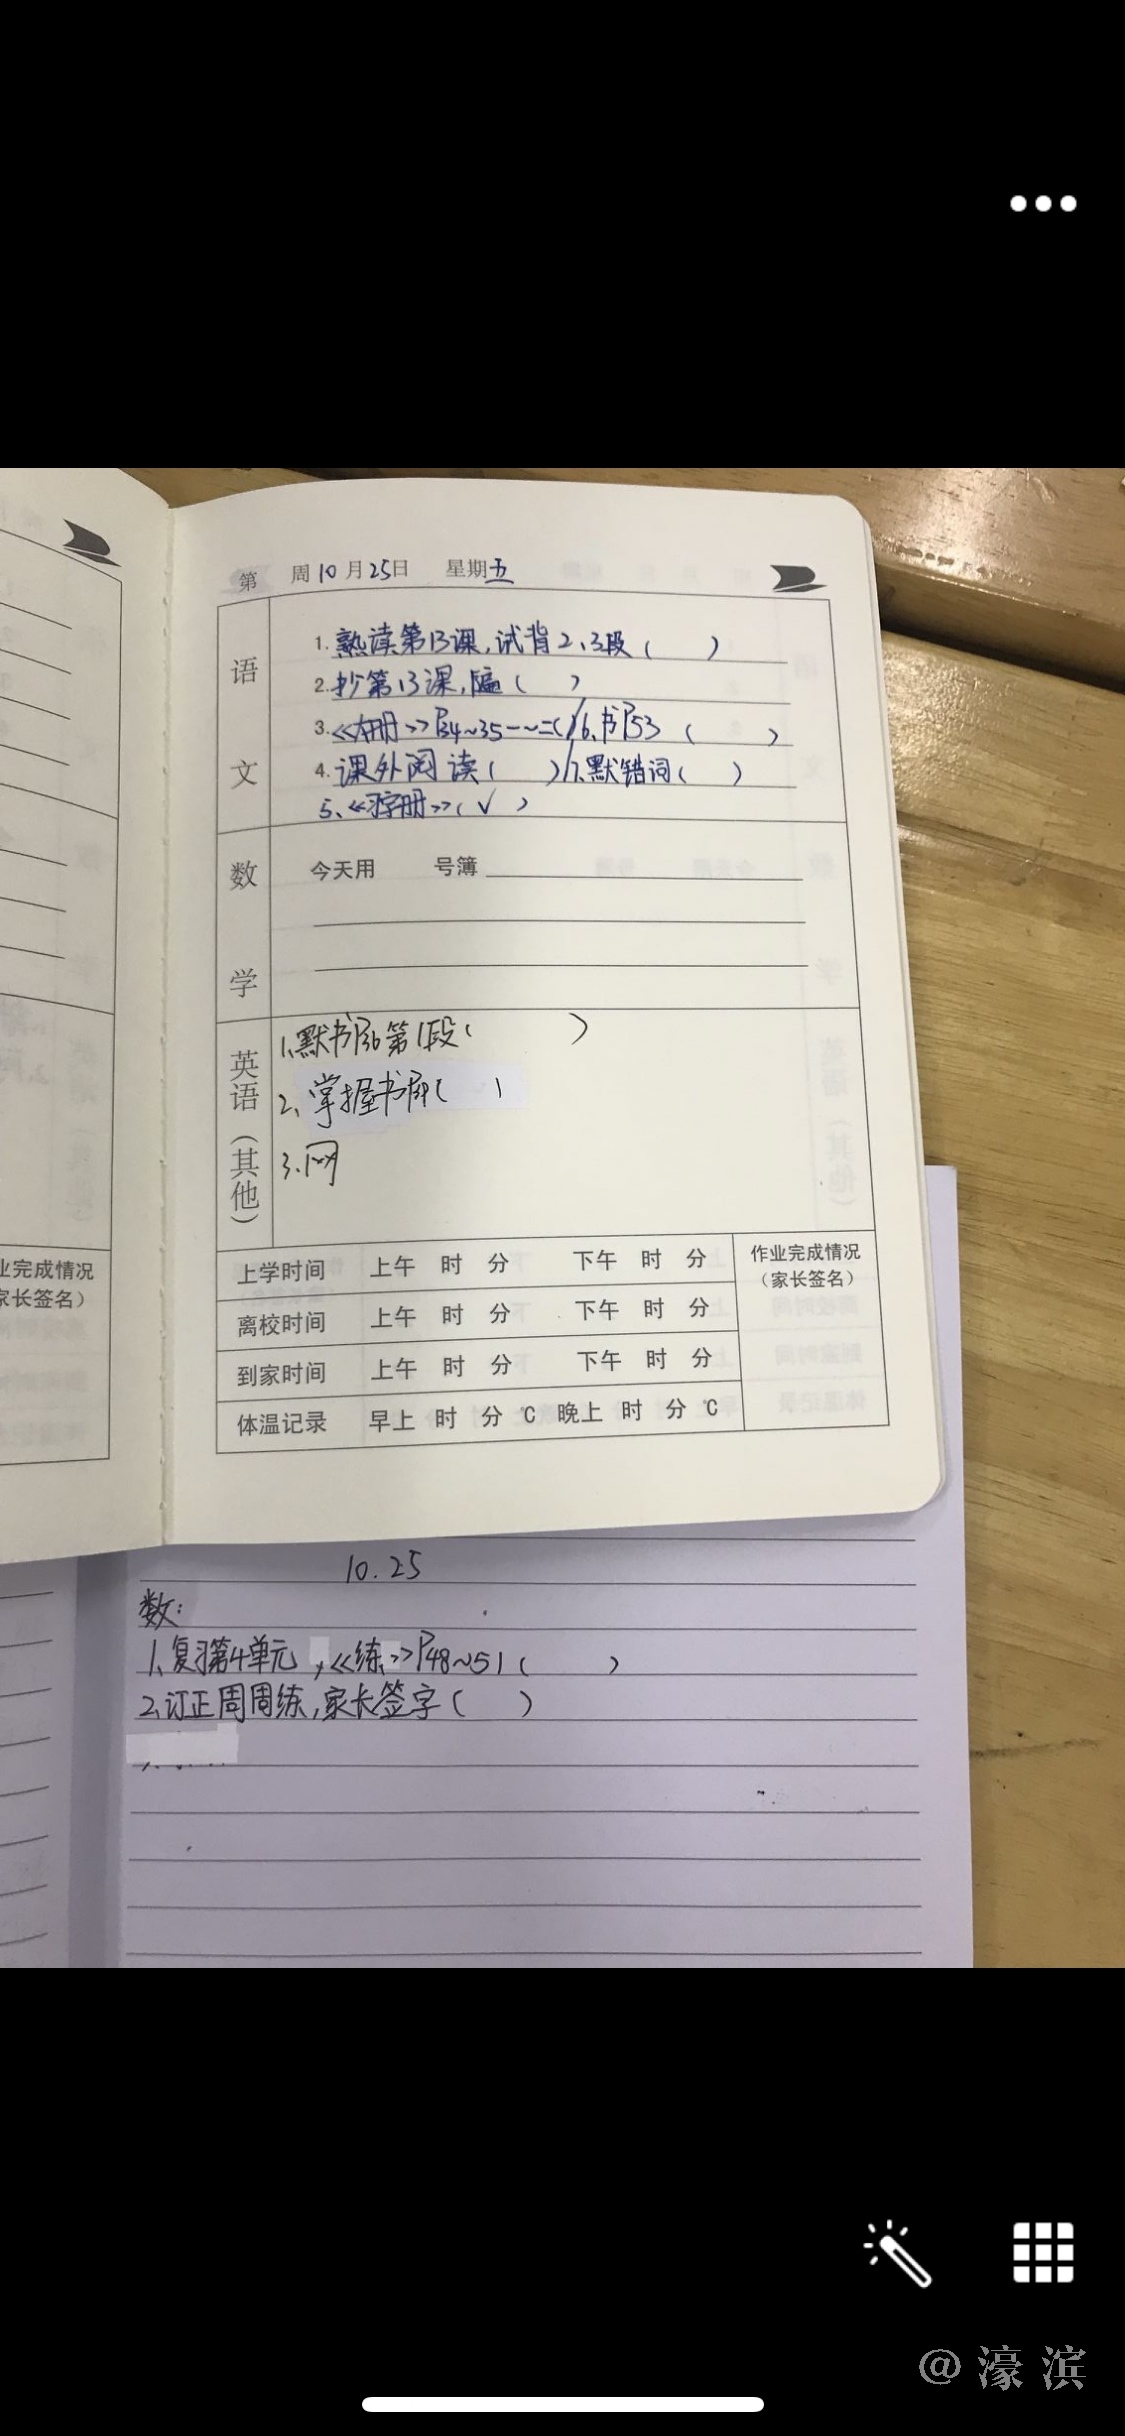 第 周10月25日 星期五
语文
1.熟读第13课,试背2、3段( )
2.抄第13课,1遍( )
3.《大册》P34~35一~二( )/6、书P53( )
4.课外阅读( )/7.默错词( )
5、《习字册》(√)
数学
今天用 号簿
英语(其他)
1.默书P36第1段( )
2、掌握书
3.网
上学时间 上午 时 分 下午 时 分
作业完成情况
(家长签名)
离校时间 上午 时 分 下午 时 分
到家时间 上午 时 分 下午 时 分
体温记录 早上 时 分 ℃ 晚上 时 分 ℃
业完成情况
家长签名)
10.25
数:
1.复习第4单元,《练》P48~51( )
2.订正周周练,家长签字( )
@濠滨